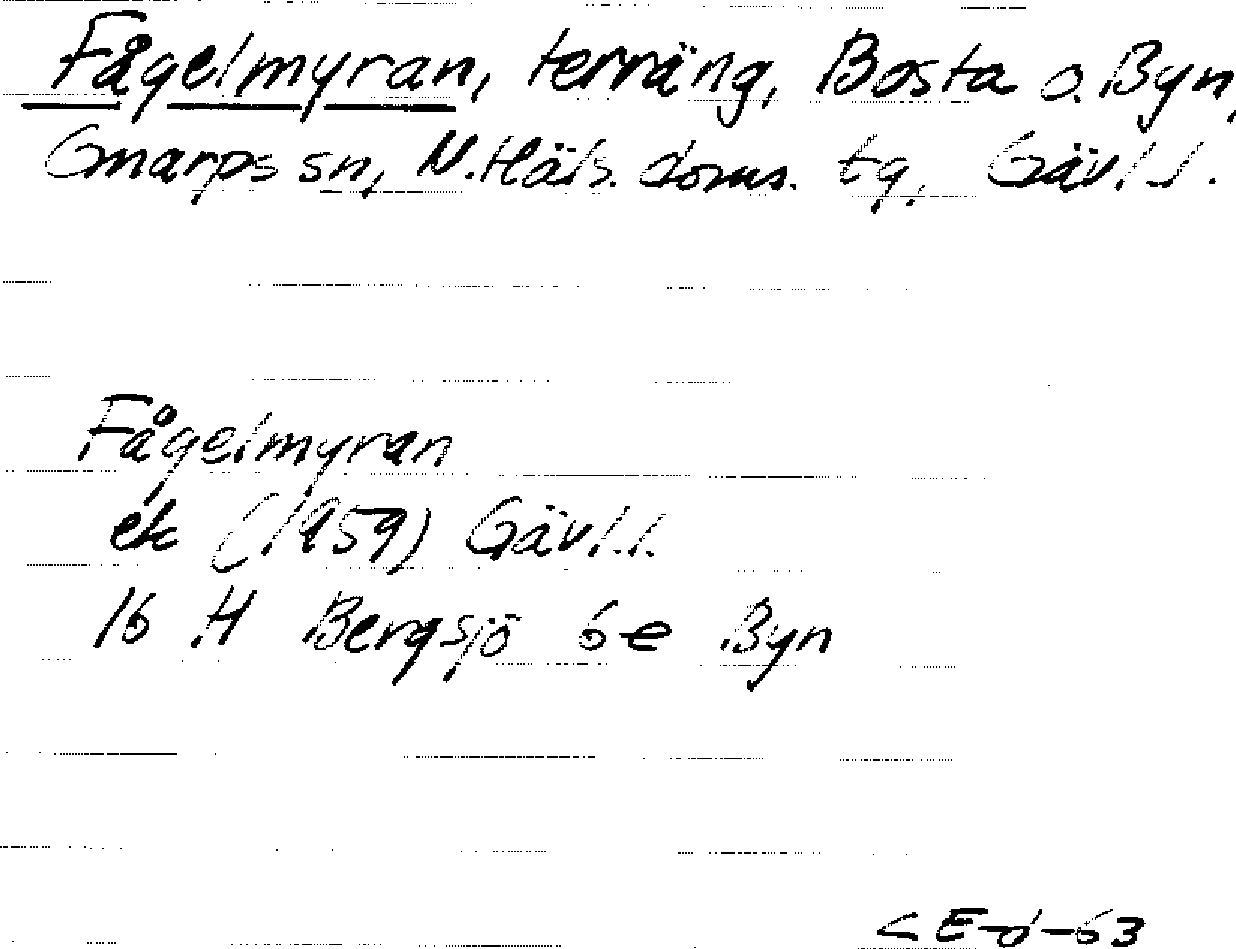 Fågelmyran, terräng, Bosta o. Byn,
Gnarps sn, N. Häls. doms. tg, Gävl. l.
Fågelmyran
ek (1959) Gävl. l.
16 H Bergsjö 6e Byn